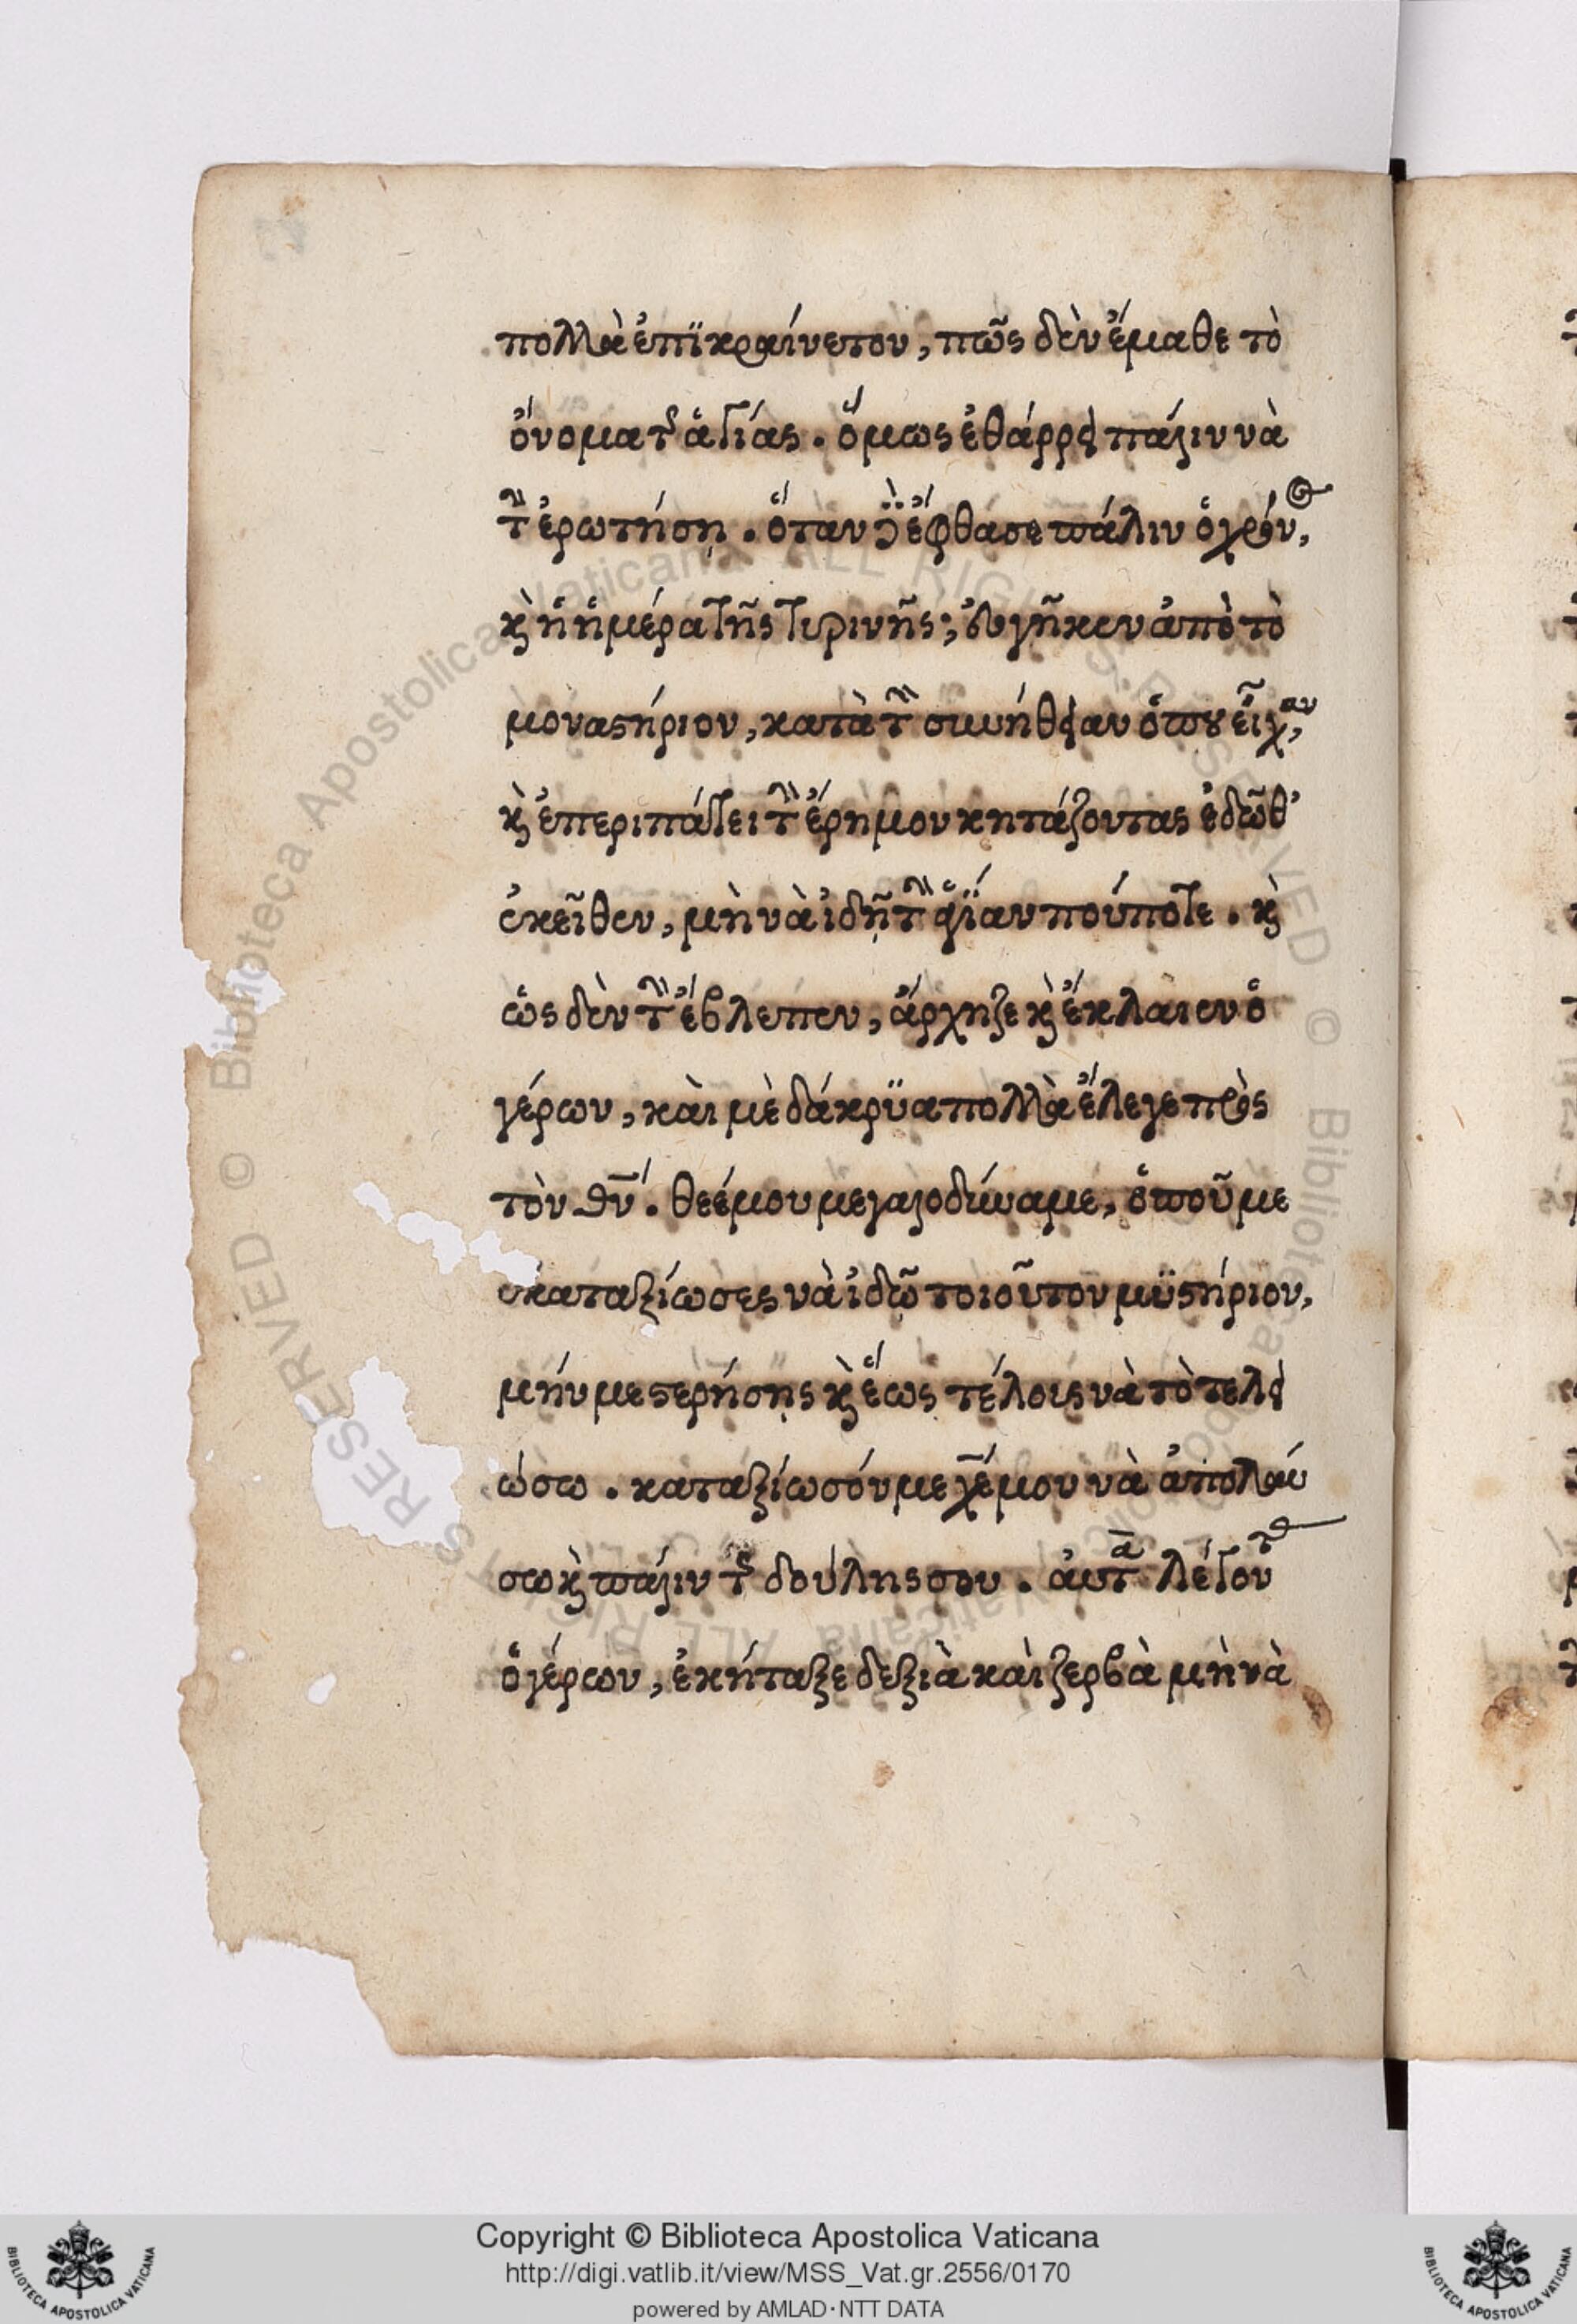 πολλὰ ἐπϊκραίνετον, πῶς δὲν ἔμαθε τὸ
ὄνομα τῆς ἁγίας. ὅμως ἐθάρρει πάλιν νὰ
τὴν ἐρωτήση. ὅταν δὲ ἔφθασε πάλιν ὁ χρόνος,
κὴ ἡ ἡμέρα τῆς τυρινῆς; εὐγῆκεν ἀπὸ τὸ
μοναστήριον, κατὰ τὴν συνήθειαν ὁποῦ εἶχαν,
κὴ ἐπεριπάτει τὴν ἔρημον κητάζοντας ἐδῶθ'
ἐκεῖθεν, μὴ νὰ ἰδῇ τὴν ἁγίαν πούποτε. κὴ
ὡς δὲν τὴν ἔβλεπεν, ἄρχηζε κὴ ἔκλαιεν ὁ
γέρων, καὶ μὲ δάκρϋα πολλὰ ἔλεγε πρὸς
τὸν θν. θεέ μου μεγαλοδύναμε, ὁποῦ με
ἐκαταξίωσες νὰ ἰδῶ τοιοῦτον μϋστήριον,
μήν με στερήσῃς κὴ ἕως τέλοις νὰ τὸ τελει
ώσω. καταξίωσόν με χέ μου νὰ ἀπολαύ
σω κὴ πάλιν τῆς δούλης σου. αὐτὰ λέγοντας
ὁ γέρων, ἐκήταξε δεξιὰ καὶ ζερβὰ μὴ νὰ
Copyright © Biblioteca Apostolica Vaticana
http://digi.vatlib.it/view/MSS_Vat.gr.2556/0170
powered by AMLAD·NTT DATA
BIBLIOTECA APOSTOLICA VATICANA
BIBLIOTECA APOSTOLICA VATICANA